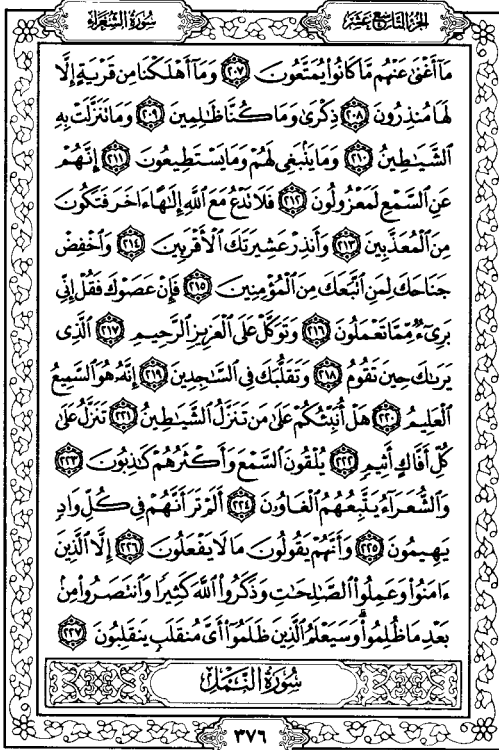 سُورَةُ الشُّعَرَاءِ
الجُزءُ التَّاسِعَ عَشَرَ
مَآ أَغْنَىٰ عَنْهُم مَّا كَانُوا۟ يُمَتَّعُونَ ٢٠٧ وَمَآ أَهْلَكْنَا مِن قَرْيَةٍ إِلَّا
لَهَا مُنذِرُونَ ٢٠٨ ذِكْرَىٰ وَمَا كُنَّا ظَٰلِمِينَ ٢٠٩ وَمَا تَنَزَّلَتْ بِهِ
ٱلشَّيَٰطِينُ ٢١٠ وَمَا يَنۢبَغِى لَهُمْ وَمَا يَسْتَطِيعُونَ ٢١١ إِنَّهُمْ
عَنِ ٱلسَّمْعِ لَمَعْزُولُونَ ٢١٢ فَلَا تَدْعُ مَعَ ٱللَّهِ إِلَٰهًا ءَاخَرَ فَتَكُونَ
مِنَ ٱلْمُعَذَّبِينَ ٢١٣ وَأَنذِرْ عَشِيرَتَكَ ٱلْأَقْرَبِينَ ٢١٤ وَٱخْفِضْ
جَنَاحَكَ لِمَنِ ٱتَّبَعَكَ مِنَ ٱلْمُؤْمِنِينَ ٢١٥ فَإِنْ عَصَوْكَ فَقُلْ إِنِّى
بَرِىٓءٌ مِّمَّا تَعْمَلُونَ ٢١٦ وَتَوَكَّلْ عَلَى ٱلْعَزِيزِ ٱلرَّحِيمِ ٢١٧ ٱلَّذِى
يَرَىٰكَ حِينَ تَقُومُ ٢١٨ وَتَقَلُّبَكَ فِى ٱلسَّٰجِدِينَ ٢١٩ إِنَّهُۥ هُوَ ٱلسَّمِيعُ
ٱلْعَلِيمُ ٢٢٠ هَلْ أُنَبِّئُكُمْ عَلَىٰ مَن تَنَزَّلُ ٱلشَّيَٰطِينُ ٢٢١ تَنَزَّلُ عَلَىٰ
كُلِّ أَفَّاكٍ أَثِيمٍ ٢٢٢ يُلْقُونَ ٱلسَّمْعَ وَأَكْثَرُهُمْ كَٰذِبُونَ ٢٢٣
وَٱلشُّعَرَآءُ يَتَّبِعُهُمُ ٱلْغَاوُۥنَ ٢٢٤ أَلَمْ تَرَ أَنَّهُمْ فِى كُلِّ وَادٍ
يَهِيمُونَ ٢٢٥ وَأَنَّهُمْ يَقُولُونَ مَا لَا يَفْعَلُونَ ٢٢٦ إِلَّا ٱلَّذِينَ
ءَامَنُوا۟ وَعَمِلُوا۟ ٱلصَّٰلِحَٰتِ وَذَكَرُوا۟ ٱللَّهَ كَثِيرًا وَٱنتَصَرُوا۟ مِنۢ
بَعْدِ مَا ظُلِمُوا۟ ۗ وَسَيَعْلَمُ ٱلَّذِينَ ظَلَمُوٓا۟ أَىَّ مُنقَلَبٍ يَنقَلِبُونَ ٢٢٧
سُورَةُ النَّمْلِ
٣٧٦